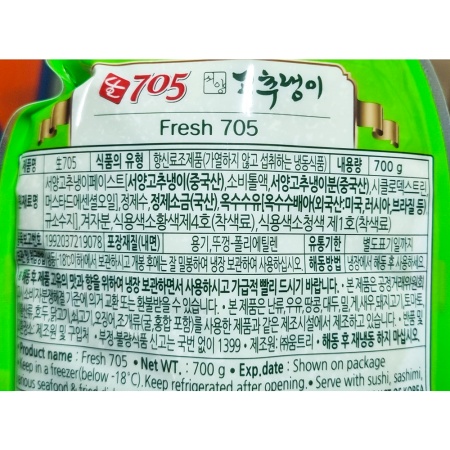 生705 서양고추냉이
Fresh 705
제품명 生705 식품의 유형 향신료조제품(가열하지 않고 섭취하는 냉동식품) 내용량 700 g
원재료명 서양고추냉이페이스트[서양고추냉이(중국산), 소비톨액, 서양고추냉이분(중국산), 시클로덱스트린,
머스타드에센셜오일], 정제수, 정제소금(국산), 옥수수유(옥수수배아(외국산:미국, 러시아, 브라질 등)
규소수지], 겨자분, 식용색소황색제4호(착색료), 식용색소청색 제1호(착색료)
1992037219078 포장재질(내면) 용기, 뚜껑-폴리에틸렌 유통기한 별도표기일까지
-18℃이하에서 보관하시고 개봉 후에는 잘 밀봉하여 냉장 보관하여 사용하십시오. 해동방법 냉장에서 해동 후 사용하세요
해동 후 제품 고유의 맛과 향을 위하여 냉장 보관하면서 사용하시고 가급적 빨리 드시기 바랍니다. • 본 제품은 공정거래위원회
소비자분쟁해결기준에 의거 교환 또는 환불받을 수 있습니다. • 본 제품은 난류, 우유, 땅콩, 대두, 밀, 게, 새우, 돼지고기, 토마토,
호두, 닭고기, 쇠고기, 오징어, 조개류(굴, 홍합 포함)를 사용한 제품과 같은 제조시설에서 제조하고 있습니다. • 반품 및
제조원 및 구입처 • 부정·불량식품 신고는 국번 없이 1399 • 제조원: ㈜움트리 • 해동 후 재냉동 하지 마십시오.
•Product name : Fresh 705 • Net WT. : 700 g • Exp,date : Shown on package
•Keep in a freezer(below -18℃). Keep refrigerated after opening. • Serve with sushi, sashimi,
various seafood &